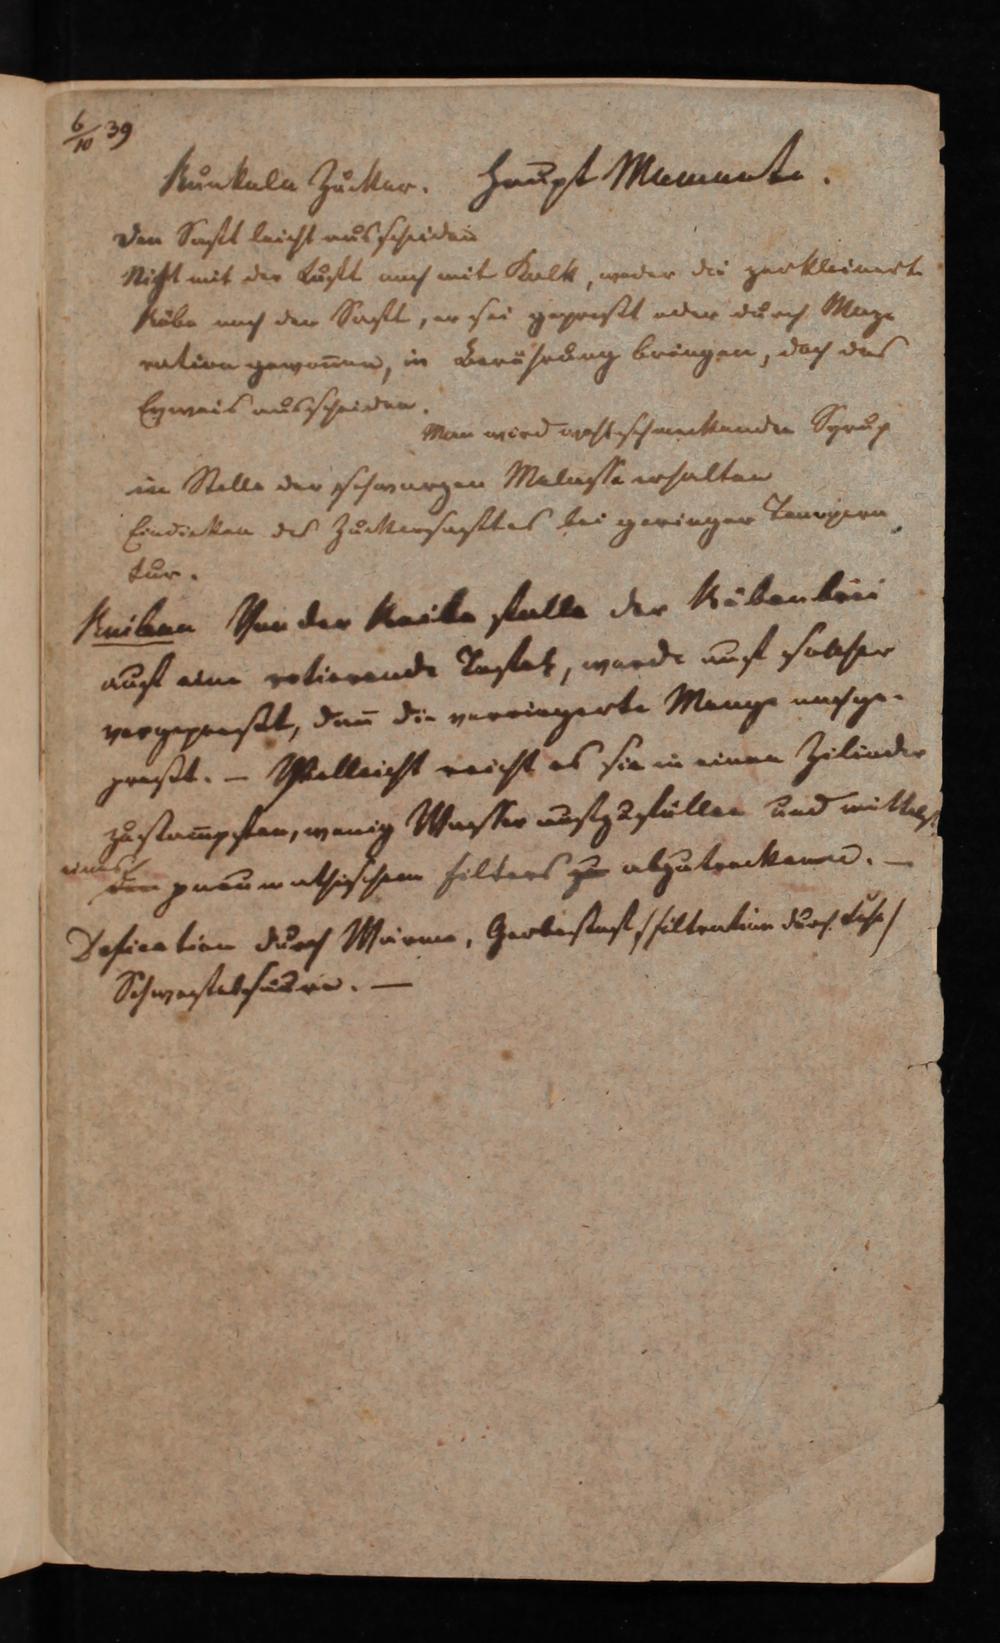 6/10 39
Runkeln Zucker. Haupt Momente.
Den Saft leicht ausscheiden
Nicht mit der Luft noch mit Kalk, weder die zerkleinerte
Rübe noch den Saft, er sei gepreßt oder durch Maze
ration gewonnen, in Berührung bringen, doch das
Eyweis ausscheiden.
Man wird wohlschmeckenden Syrup
in Stelle der schwarzen Melasse erhalten
Eindicken des Zuckersaftes bei geringer Tempera
tur.
Reiben Von der Reibe falle der Rübenbrei
auf eine rotierende Tafel, werde auf solcher
vorgepreßt, dann die verringerte Menge nachge-
preßt. – Vielleicht reicht es sie in einen Zilinder
zustampfen, wenig Wasser aufzufüllen und mittelst
eines pneumathischen Filters zu abzutrocknen. —
Defication durch Wärme, Gerbestoff /Filtration durch Kohle/
Schwefelsäure. —